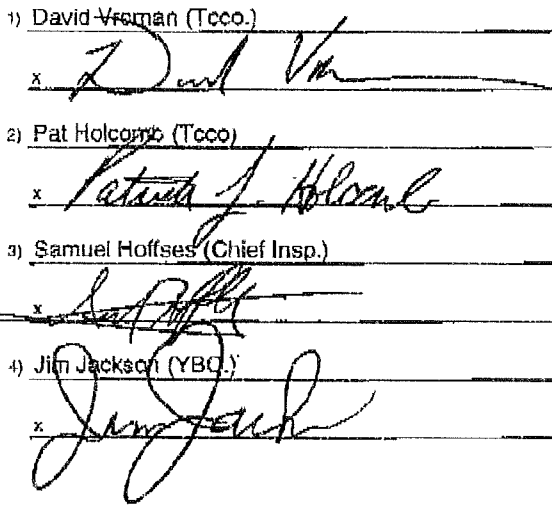 1) David Vroman (Tcco.)
x David Vr
2) Pat Holcomb (Tcco)
x Patrick J. Holcomb
3) Samuel Hoffses (Chief Insp.)
x
4) Jim Jackson (YBC.)
x Jim Jack